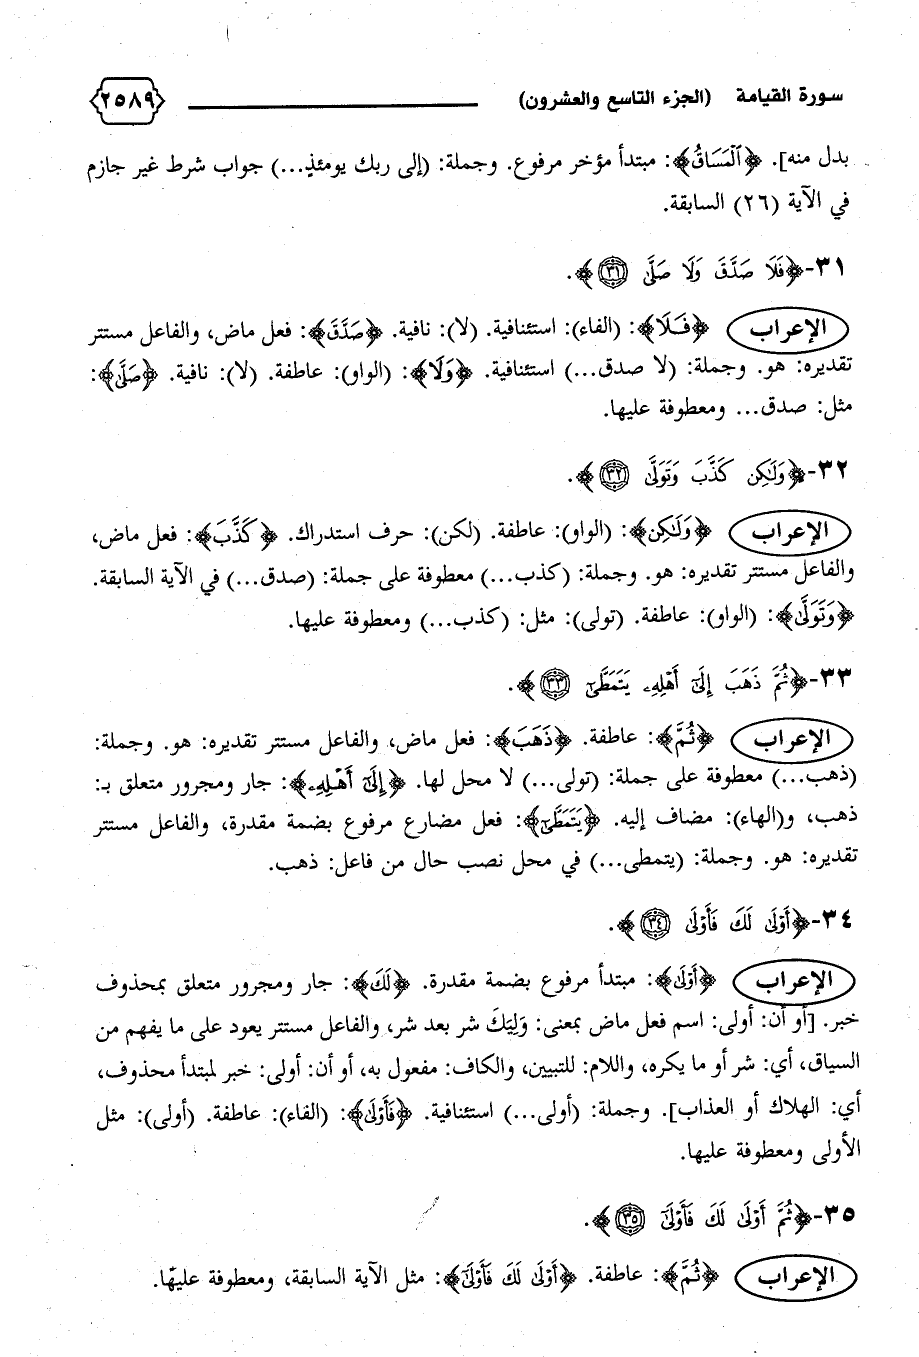 سورة القيامة (الجزء التاسع والعشرون) ٢٥٨٩
بدل منه]. ﴿ٱلْمَسَاقُ﴾: مبتدأ مؤخر مرفوع. وجملة: (إلى ربك يومئذٍ...) جواب شرط غير جازم
في الآية (٢٦) السابقة.
٣١-﴿فَلَا صَدَّقَ وَلَا صَلَّىٰ ٣١﴾.
الإعراب ﴿فَلَا﴾: (الفاء): استئنافية. (لا): نافية. ﴿صَدَّقَ﴾: فعل ماض، والفاعل مستتر
تقديره: هو. وجملة: (لا صدق...) استئنافية. ﴿وَلَا﴾: (الواو): عاطفة. (لا): نافية. ﴿صَلَّىٰ﴾:
مثل: صدق... ومعطوفة عليها.
٣٢-﴿وَلَٰكِن كَذَّبَ وَتَوَلَّىٰ ٣٢﴾.
الإعراب ﴿وَلَٰكِن﴾: (الواو): عاطفة. (لكن): حرف استدراك. ﴿كَذَّبَ﴾: فعل ماض،
والفاعل مستتر تقديره: هو. وجملة: (كذب...) معطوفة على جملة: (صدق...) في الآية السابقة.
﴿وَتَوَلَّىٰ﴾: (الواو): عاطفة. (تولى): مثل: (كذب...) ومعطوفة عليها.
٣٣-﴿ثُمَّ ذَهَبَ إِلَىٰٓ أَهْلِهِۦ يَتَمَطَّىٰٓ ٣٣﴾.
الإعراب ﴿ثُمَّ﴾: عاطفة. ﴿ذَهَبَ﴾: فعل ماض، والفاعل مستتر تقديره: هو. وجملة:
(ذهب...) معطوفة على جملة: (تولى...) لا محل لها. ﴿إِلَىٰٓ أَهْلِهِۦ﴾: جار ومجرور متعلق بـ:
ذهب، و(الهاء): مضاف إليه. ﴿يَتَمَطَّىٰٓ﴾: فعل مضارع مرفوع بضمة مقدرة، والفاعل مستتر
تقديره: هو. وجملة: (يتمطى...) في محل نصب حال من فاعل: ذهب.
٣٤-﴿أَوْلَىٰ لَكَ فَأَوْلَىٰ ٣٤﴾.
الإعراب ﴿أَوْلَىٰ﴾: مبتدأ مرفوع بضمة مقدرة. ﴿لَكَ﴾: جار ومجرور متعلق بمحذوف
خبر. [أو أن: أولى: اسم فعل ماض بمعنى: وَلِيَكَ شر بعد شر، والفاعل مستتر يعود على ما يفهم من
السياق، أي: شر أو ما يكره، واللام: للتبيين، والكاف: مفعول به، أو أن: أولى: خبر لمبتدأ محذوف،
أي: الهلاك أو العذاب]. وجملة: (أولى...) استئنافية. ﴿فَأَوْلَىٰ﴾: (الفاء): عاطفة. (أولى): مثل
الأولى ومعطوفة عليها.
٣٥-﴿ثُمَّ أَوْلَىٰ لَكَ فَأَوْلَىٰٓ ٣٥﴾.
الإعراب ﴿ثُمَّ﴾: عاطفة. ﴿أَوْلَىٰ لَكَ فَأَوْلَىٰٓ﴾: مثل الآية السابقة، ومعطوفة عليها.